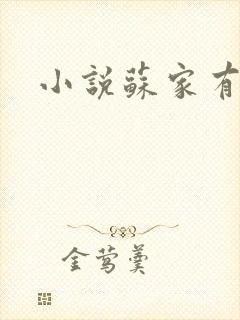 小說蘇家有
金莺羹